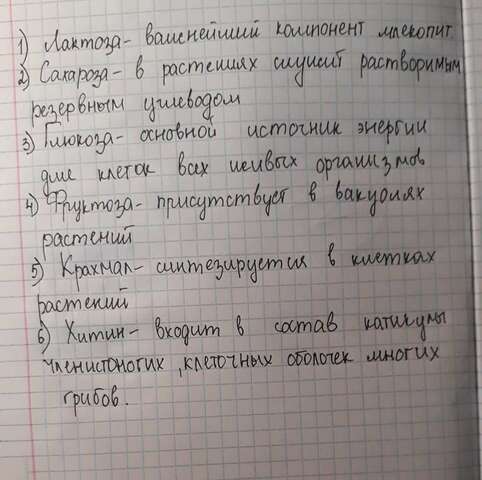 1) Лактоза- важнейший компонент млекопит
2) Сахароза- в растениях служит растворимым
резервным углеводом
3) Глюкоза- основной источник энергии
для клеток всех живых организмов
4) Фруктоза- присутствует в вакуолях
растений
5) Крахмал- синтезируется в клетках
растений
6) Хитин- входит в состав катикулы
членистоногих, клеточных оболочек многих
грибов.